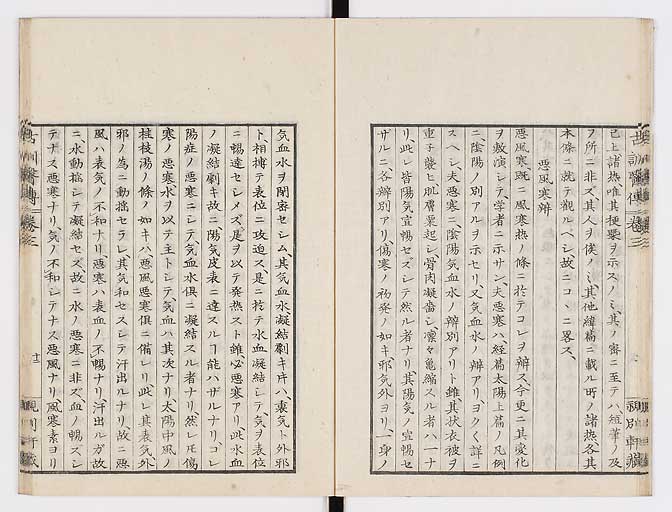 已上諸熱唯其梗槩ヲ示スノミ、其ノ審ニ至テハ短筆ノ及
ブ所ニ非ズ其人ヲ俟ノミ、其他緯篇ニ載ル所ノ諸熱各其
本條ニ就テ觀ルベシ故ニココニ畧ス、
惡風寒辨
惡風寒既ニ風寒熱ノ條ニ於テコレヲ辨ス、今更ニ其變化
ヲ敷演シテ、学者ニ示サン、夫惡寒ハ経篇太陽上篇ノ凡例
ニ、陰陽ノ別アルヲ示セリ、又気血水ノ辨アリ、ヨク〱詳ニ
スヘシ、夫惡寒ニ陰陽気血水ノ辨別アリト雖其状衣被ヲ
重子襲ヒ肌膚粟起シ、骨肉凝嗇シ、凛々亀縮スル者ハ一ナ
リ、此レ皆陽気宣暢セズシテ然ル者ナリ、其陽気ノ宣暢セ
ザルニ各辨別アリ、傷寒ノ初発ノ如キ、邪気外ヨリ一身ノ
気血水ヲ閉密セシム、其気血水、凝結劇キ片ハ、裹気ト外邪
ト相搏テ表位ニ攻迫ス是ニ於テ水血凝結シテ、気ヲ表位
ニ暢達セシメズ、是ヲ以テ発熱スト雖、必惡寒アリ、此水血
ノ凝結劇キ故ニ陽気皮表ニ達スルヿ能ハザルナリ、コレ
陽症ノ惡寒ニシテ、気血水倶ニ凝結スル者ナリ、然レ圧傷
寒ノ惡寒水ヲ以テ主トシテ、気血ハ其次ナリ、太陽中風ノ
桂枝湯ノ條ノ如キハ惡風惡寒倶ニ備レリ、此レ其表気、外
邪ノ為ニ動揺セラレ、其気和セスシテ汗出ルナリ、故ニ惡
風ハ表気ノ不和ナリ、惡寒ハ表血ノ不暢ナリ、汗出ルガ故
ニ水動揺シテ凝結セズ、故ニ水ノ惡寒ニ非ズ、血ノ暢ズシ
テナス惡寒ナリ、気ノ不和シテナス惡風ナリ、風寒素ヨリ
古訓醫傳
巻三